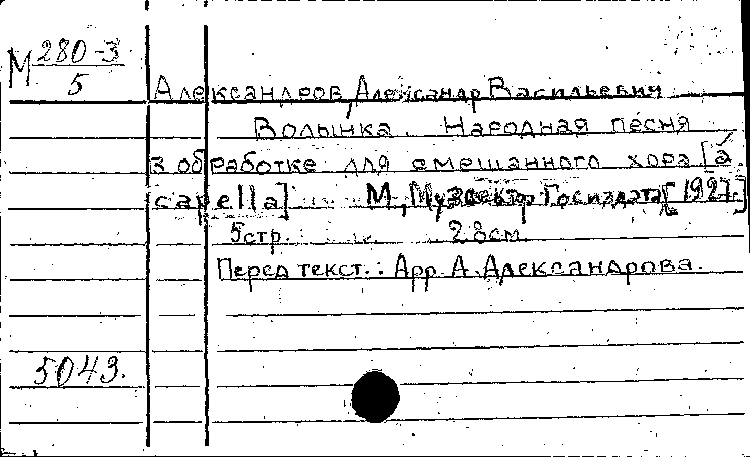 М 280-3
5
Александров, Александр Васильевич
Волынка. Народная песня
в обработке для смешанного хора [á
capella] М., Музсектор Госиздата [1927.]
5 стр. 28 см.
Перед текст.: Арр. А. Александрова.
5043.